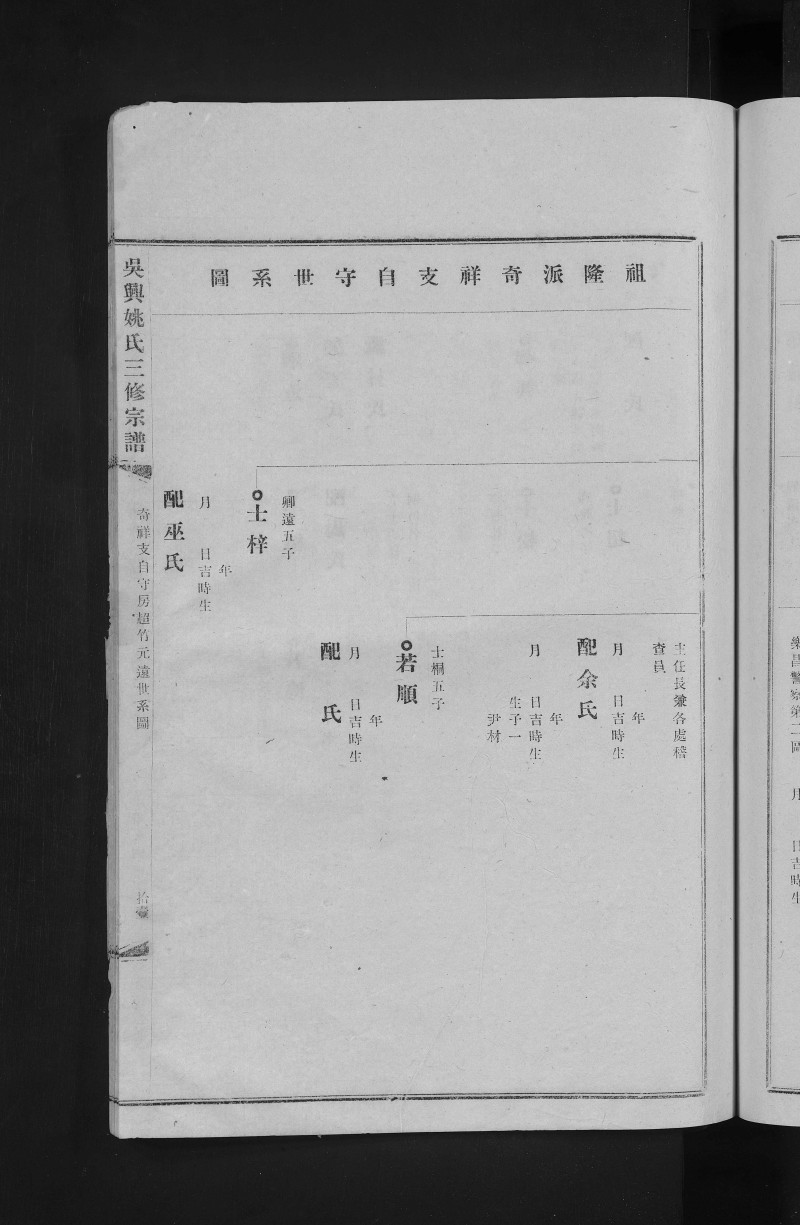 祖隆派奇祥支自守世系圖
主任長兼各處稽
查員
年
月　日吉時生
配余氏
年
月　日吉時生
生子一
尹材
士桐五子
若順
年
月　日吉時生
配　氏
卿遠五子
士梓
年
月　日吉時生
配巫氏
吳興姚氏三修宗譜
奇祥支自守房超竹元遠世系圖
拾壹
樂昌警察第二區　月　日吉時生